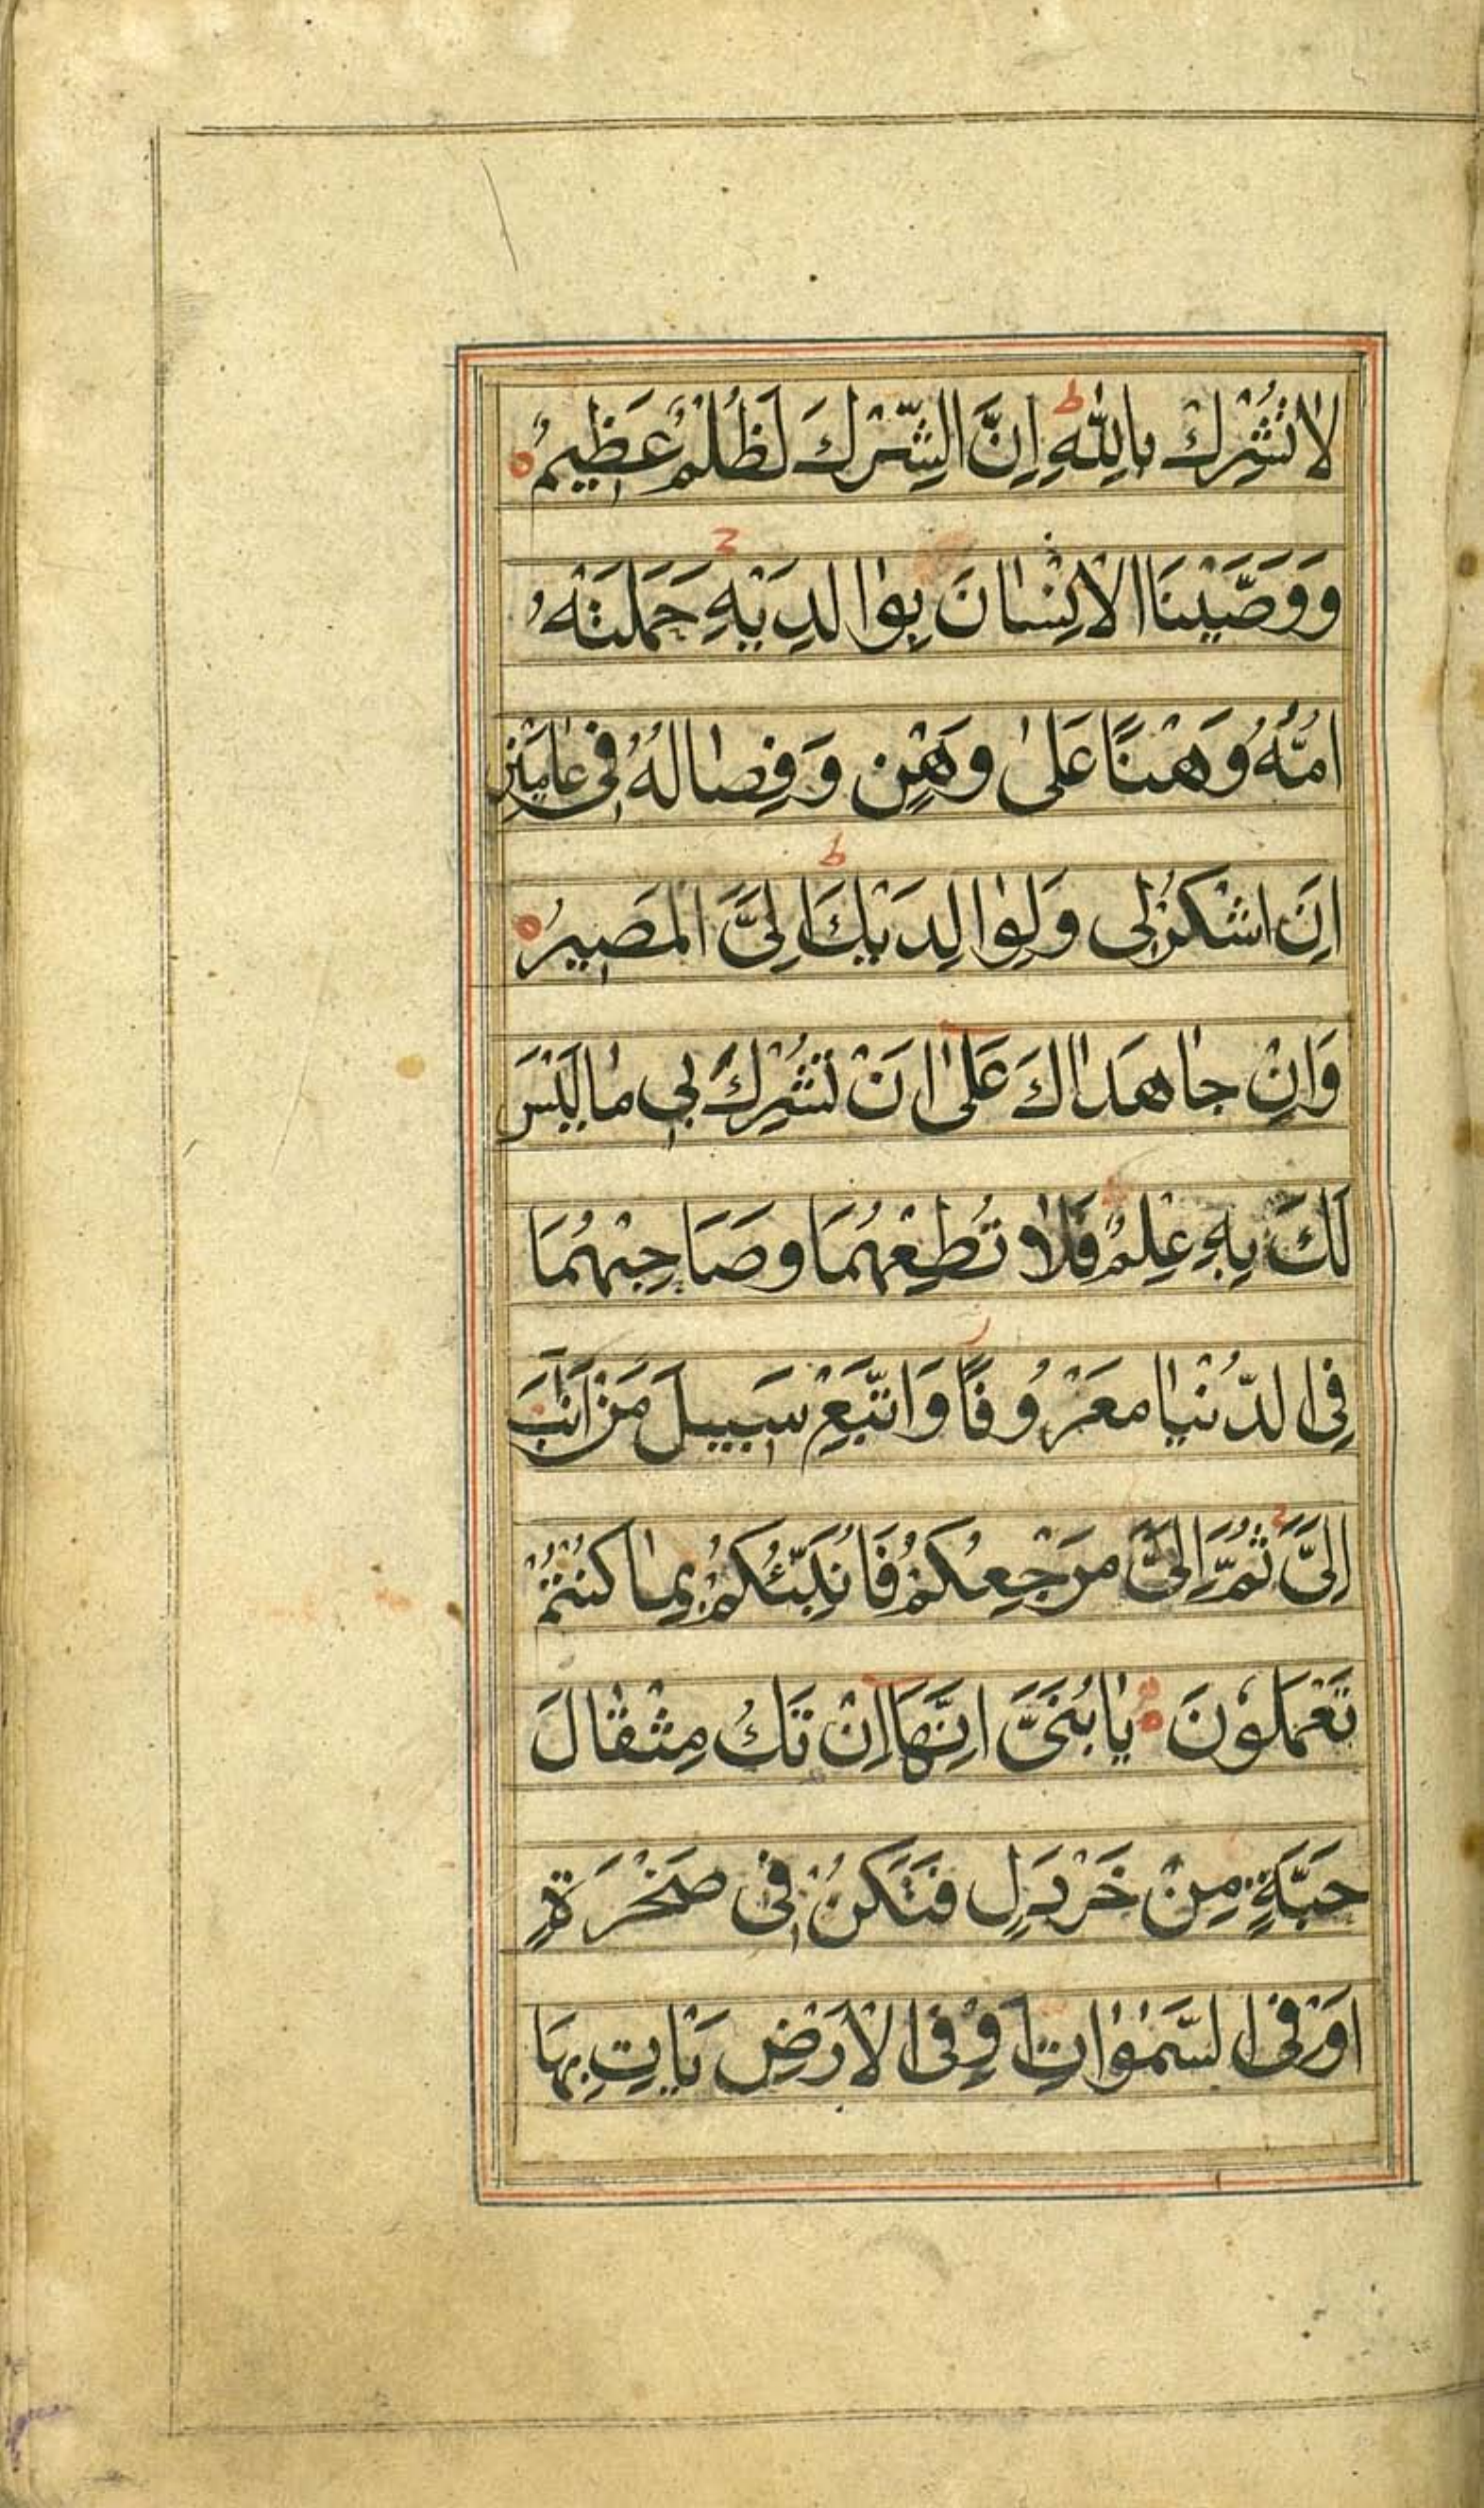 لَا تُشْرِكْ بِاللّٰهِ ط اِنَّ الشِّرْكَ لَظُلْمٌ عَظِيمٌ ه
وَوَصَّيْنَا الْاِنْسَانَ بِوَالِدَيْهِ ح حَمَلَتْهُ
اُمُّهُ وَهْنًا عَلٰى وَهْنٍ وَفِصَالُهُ فِي عَامَيْنِ
اَنِ اشْكُرْ لِي وَلِوَالِدَيْكَ ط اِلَيَّ الْمَصِيرُ ه
وَاِنْ جَاهَدَاكَ عَلٰى اَنْ تُشْرِكَ بِي مَا لَيْسَ
لَكَ بِهِ عِلْمٌ فَلَا تُطِعْهُمَا وَصَاحِبْهُمَا
فِي الدُّنْيَا مَعْرُوفًا ز وَاتَّبِعْ سَبِيلَ مَنْ اَنَابَ
اِلَيَّ ج ثُمَّ اِلَيَّ مَرْجِعُكُمْ فَاُنَبِّئُكُمْ بِمَا كُنْتُمْ
تَعْمَلُونَ ه يَا بُنَيَّ اِنَّهَا اِنْ تَكُ مِثْقَالَ
حَبَّةٍ مِنْ خَرْدَلٍ فَتَكُنْ فِي صَخْرَةٍ
اَوْ فِي السَّمٰوَاتِ اَوْ فِي الْاَرْضِ يَاْتِ بِهَا